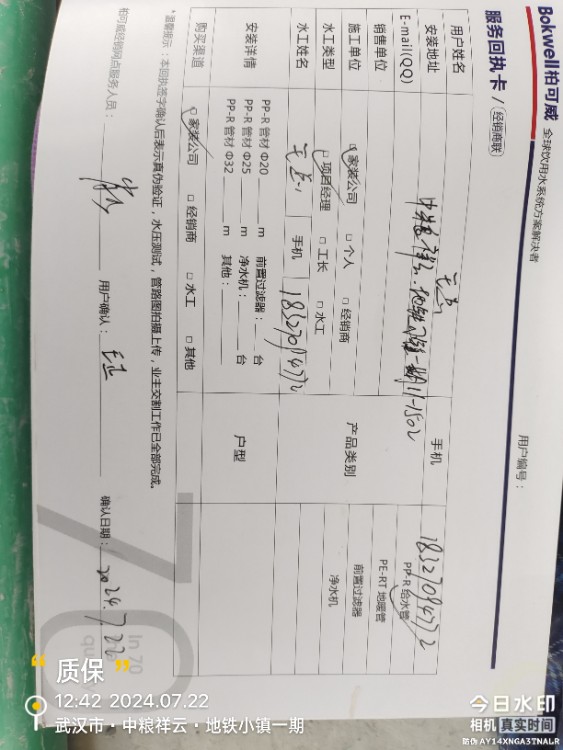 Bokwell柏可威 全球饮用水系统方案解决者
服务回执卡 / 经销商联
用户编号：
用户姓名
手机 18327084772
安装地址 中粮祥云·地铁小镇一期11-1502
E-mail(QQ)
销售单位
产品类别
PP-R 给水管
PE-RT 地暖管
前置过滤器
净水机
施工单位 □ 家装公司 □ 个人 □ 经销商
水工类型 □ 项目经理 □ 工长 □ 水工
水工姓名
手机 18327084772
安装详情
PP-R 管材 Φ20 m 前置过滤器： 台
PP-R 管材 Φ25 m 净水机： 台
PP-R 管材 Φ32 m 其他：
户型
购买渠道 □ 家装公司 □ 经销商 □ 水工 □ 其他
*温馨提示：本回执签字确认后表示真伪验证，水压测试，管路图拍摄上传，业主交割工作已全部完成。
柏可威经销网点服务人员：
用户确认：
确认日期： 2024.7.22
70
In 70
“质保”
12:42 2024.07.22
武汉市·中粮祥云·地铁小镇一期
今日水印
相机 真实时间
防伪 AY14XNGA3TNALR